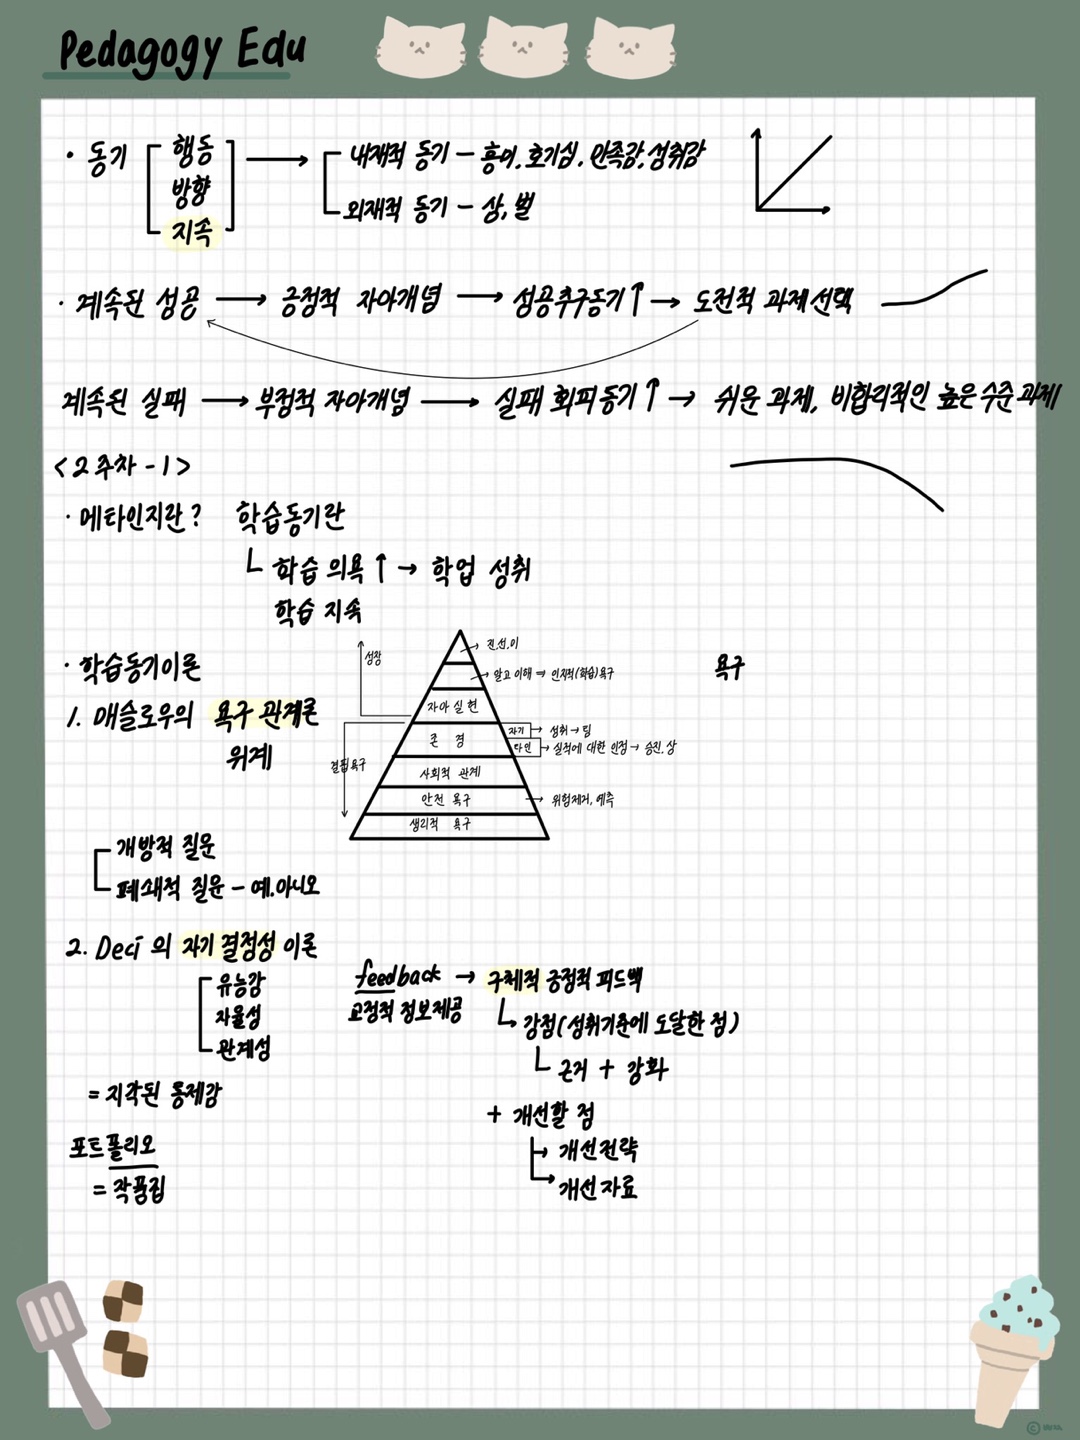 Pedagogy Edu
· 동기 [ 행동 방향 지속 ] → 내재적 동기 - 흥미, 호기심, 만족감, 성취감
외재적 동기 - 상, 벌
· 계속된 성공 → 긍정적 자아개념 → 성공추구동기↑ → 도전적 과제선택
계속된 실패 → 부정적 자아개념 → 실패 회피동기↑ → 쉬운 과제, 비합리적인 높은 수준 과제
<2주차-1>
· 메타인지란? 학습동기란
ㄴ 학습 의욕↑ → 학업 성취
학습 지속
· 학습동기이론
욕구
1. 매슬로우의 욕구 관계론
위계
성장
결핍욕구
→ 진.선.미
→ 알고 이해 ⇒ 인지적(학습)욕구
자아실현
존경
자기 → 성취→팁
타인 → 실적에 대한 인정 → 승진, 상
사회적 관계
안전 욕구 → 위험제거, 예측
생리적 욕구
개방적 질문
폐쇄적 질문 - 예.아니오
2. Deci 의 자기결정성 이론
유능감
자율성
관계성
= 지각된 통제감
포트폴리오
= 작품집
feedback → 구체적 긍정적 피드백
교정적 정보제공
ㄴ 강점(성취기준에 도달한 점)
ㄴ 근거 + 강화
+ 개선할 점
→ 개선전략
→ 개선자료